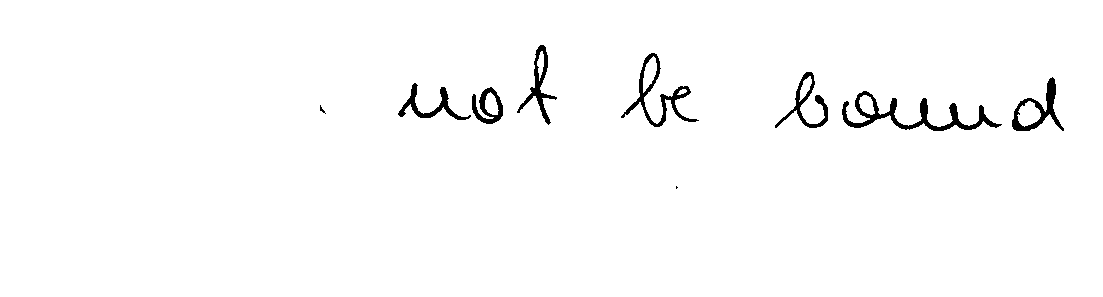 not be bound